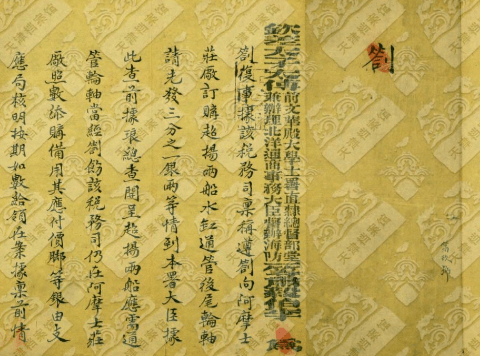 劄
前文華殿大學士署直隸總督部堂
兼辦理北洋通商事務大臣
一等肅毅伯李 爲
劄復事據該稅務司稟稱遵劄向阿摩士
莊廠訂購超揚兩船水缸通管後尾輪軸
請先發三分之一銀兩等情到本署大臣據
此查前據琅總查開呈超揚兩船應需通
管輪軸當經劄飭該稅務司仍在阿摩士莊
廠照數添購備用其應付價腳等銀由支
應局核明按期如數給領在案據稟前情
天津档案馆